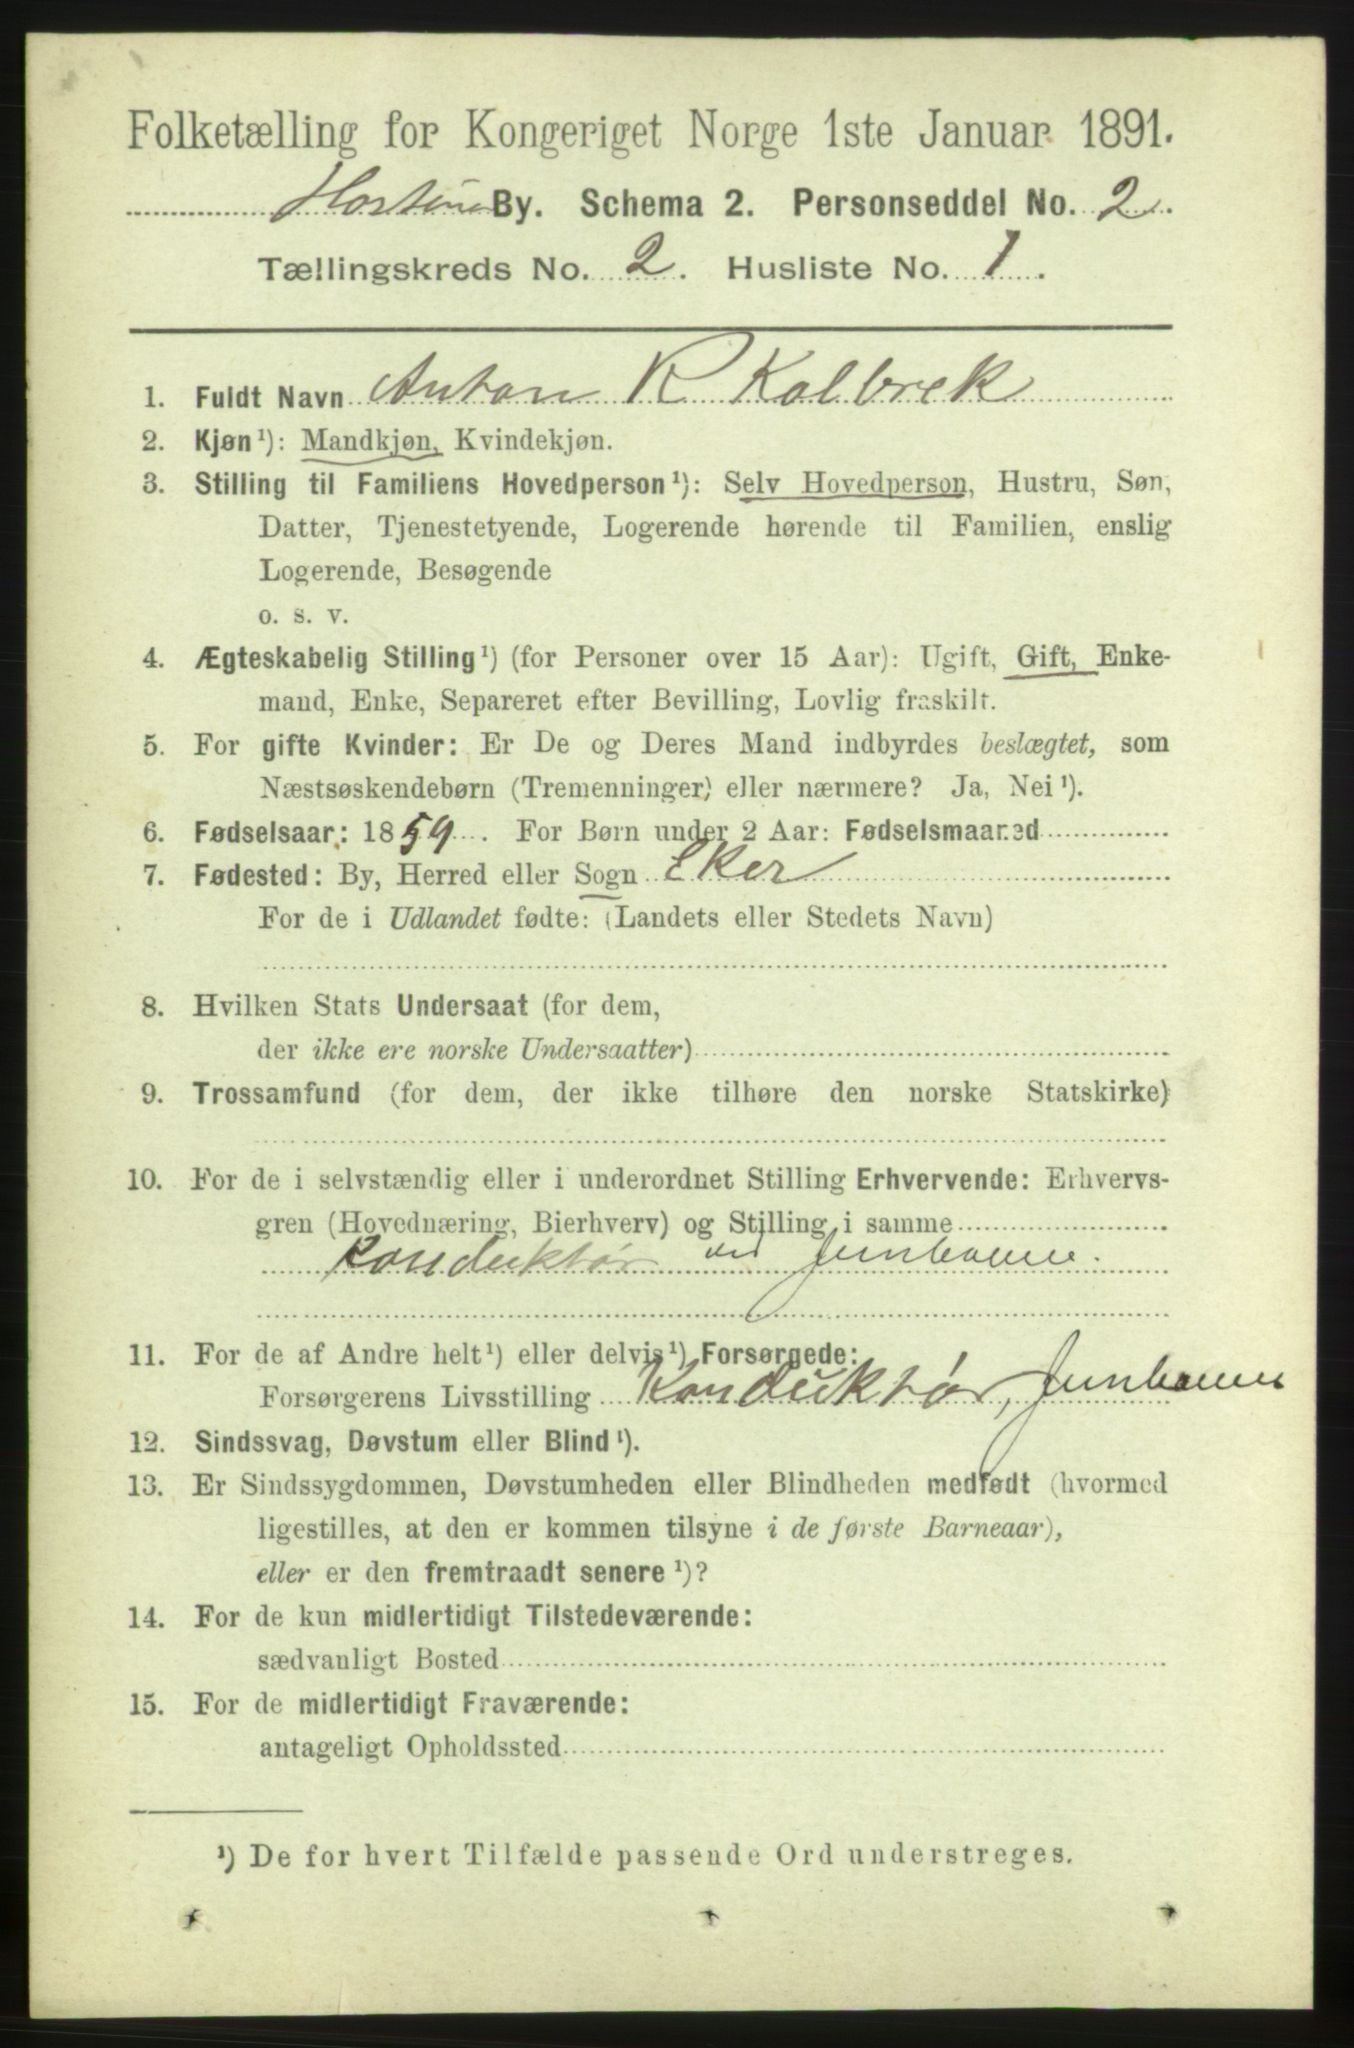 Folketælling for Kongeriget Norge 1ste Januar 1891.
Horten By. Schema 2. Personseddel No. 2.
Tællingskreds No. 2. Husliste No. 1.
1. Fuldt Navn Anton R Kolbrek
2. Kjøn¹): Mandkjøn, Kvindekjøn.
3. Stilling til Familiens Hovedperson¹): Selv Hovedperson, Hustru, Søn,
Datter, Tjenestetyende, Logerende hørende til Familien, enslig
Logerende, Besøgende
o. s. v.
4. Ægteskabelig Stilling¹) (for Personer over 15 Aar): Ugift, Gift, Enke-
mand, Enke, Separeret efter Bevilling, Lovlig fraskilt.
5. For gifte Kvinder: Er De og Deres Mand indbyrdes beslægtet, som
Næstsøskendebørn (Tremenninger) eller nærmere? Ja, Nei¹).
6. Fødselsaar: 1859. For Børn under 2 Aar: Fødselsmaaned
7. Fødested: By, Herred eller Sogn Eker
For de i Udlandet fødte: (Landets eller Stedets Navn)
8. Hvilken Stats Undersaat (for dem,
der ikke ere norske Undersaatter)
9. Trossamfund (for dem, der ikke tilhøre den norske Statskirke)
10. For de i selvstændig eller i underordnet Stilling Erhvervende: Erhvervs-
gren (Hovednæring, Bierhverv) og Stilling i samme
Konduktør ved Jernbanen.
11. For de af Andre helt¹) eller delvis¹) Forsørgede:
Forsørgerens Livsstilling Konduktør, Jernbanen
12. Sindssvag, Døvstum eller Blind¹).
13. Er Sindssygdommen, Døvstumheden eller Blindheden medfødt (hvormed
ligestilles, at den er kommen tilsyne i de første Barneaar),
eller er den fremtraadt senere¹)?
14. For de kun midlertidigt Tilstedeværende:
sædvanligt Bosted
15. For de midlertidigt Fraværende:
antageligt Opholdssted
¹) De for hvert Tilfælde passende Ord understreges.